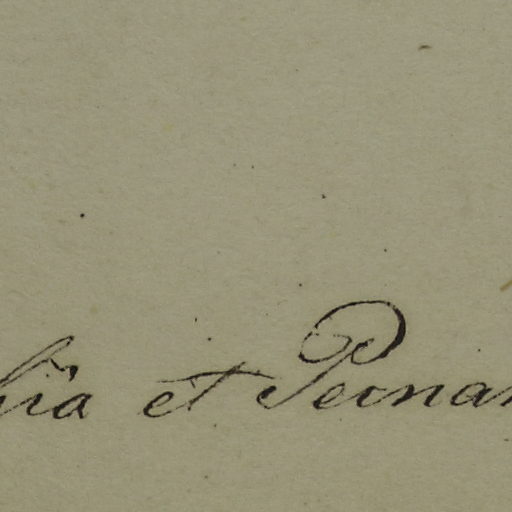 hïa et Pernan